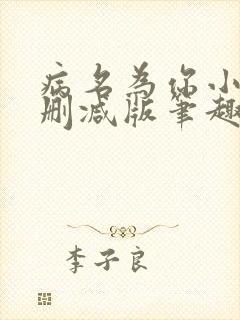 病名为你小
删减版笔趣
李子良